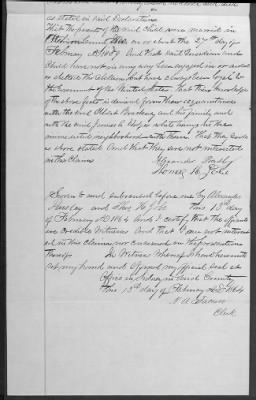 as stated in said Declaration
That the parents of the said Child were married in
County Ohio on or about the 27th day of
February And that said Guardian and
Child have not in any way been engaged in or aided
or abetted the rebellion but have always been loyal to
the Government of the United States That their knowledge
of the above facts is derived from their acquaintance
with the and his family and
with the said James
immediate neighborhood with them That they reside
as above stated And that they are not interested
in this Claim
Alexander
Thomas H.
Sworn to and subscribed before me by Alexander
and Thos H. this 13th day
of February AD 1864 And I certify that the affiants
are credible Witnesses And that I am not interest
ed in this claim nor concerned in the prosecution
thereof In Witness Whereof I have hereunto
set my hand and affixed my official seal at
Office in Sidney in said County
this 13th day of February AD 1864
N. R.
Clerk